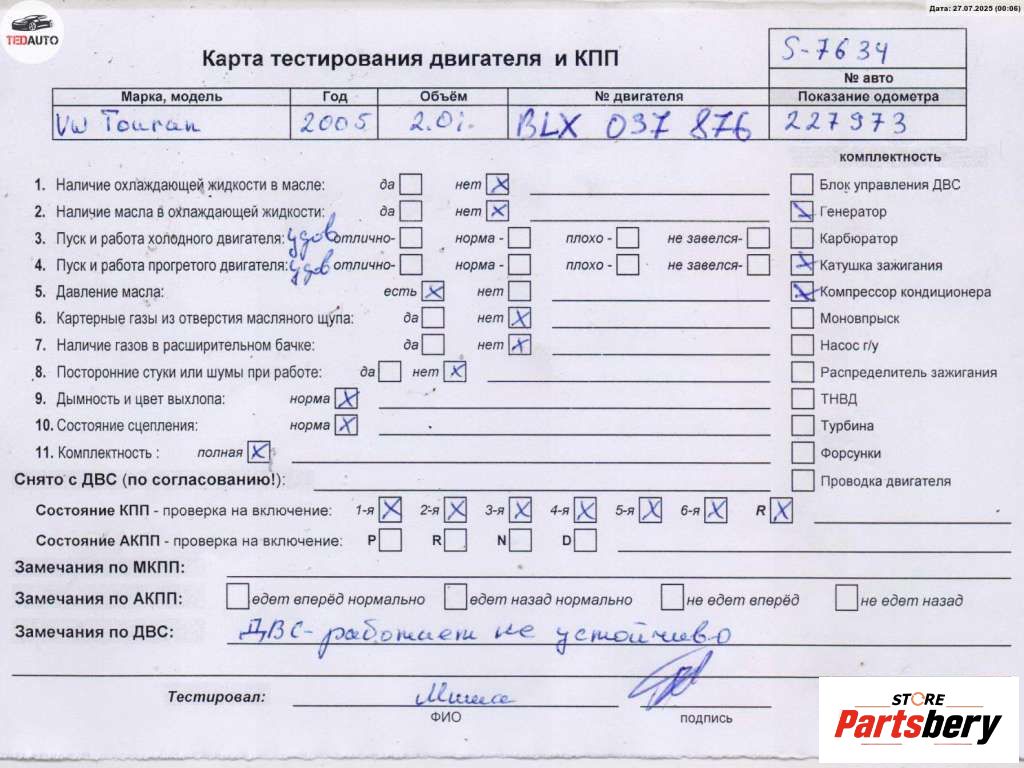 Дата: 27.07.2025 (00:06)
TEDAUTO
Карта тестирования двигателя и КПП
S-7634
№ авто
Марка, модель Год Объём № двигателя Показание одометра
VW Touran 2005 2.0i. BLX 037 876 227973
комплектность
1. Наличие охлаждающей жидкости в масле: да нет X Блок управления ДВС
2. Наличие масла в охлаждающей жидкости: да нет X Генератор
3. Пуск и работа холодного двигателя: удов отлично- норма - плохо - не завелся- Карбюратор
4. Пуск и работа прогретого двигателя: удов отлично- норма - плохо - не завелся- Катушка зажигания
5. Давление масла: есть X нет Компрессор кондиционера
6. Картерные газы из отверстия масляного щупа: да нет X Моновпрыск
7. Наличие газов в расширительном бачке: да нет X Насос г/у
8. Посторонние стуки или шумы при работе: да нет X Распределитель зажигания
9. Дымность и цвет выхлопа: норма X ТНВД
10. Состояние сцепления: норма X Турбина
11. Комплектность : полная X Форсунки
Снято с ДВС (по согласованию!): Проводка двигателя
Состояние КПП - проверка на включение: 1-я X 2-я X 3-я X 4-я X 5-я X 6-я X R X
Состояние АКПП - проверка на включение: P R N D
Замечания по МКПП:
Замечания по АКПП: едет вперёд нормально едет назад нормально не едет вперёд не едет назад
Замечания по ДВС: ДВС- работает не устойчиво
Тестировал: Миша
ФИО подпись
STORE
Partsbery